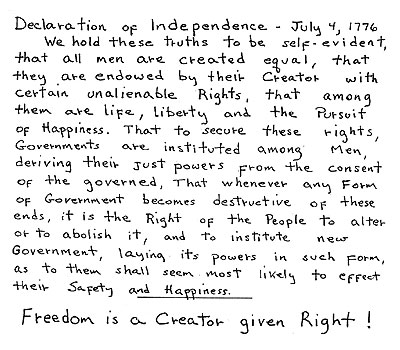 Declaration of Independence - July 4, 1776
We hold these truths to be self-evident,
that all men are created equal, that
they are endowed by their Creator with
certain unalienable Rights, that among
them are life, liberty and the Pursuit
of Happiness. That to secure these rights,
Governments are instituted among Men,
deriving their just powers from the consent
of the governed, That whenever any Form
of Government becomes destructive of these
ends, it is the Right of the People to alter
or to abolish it, and to institute new
Government, laying its powers in such form,
as to them shall seem most likely to effect
their Safety and Happiness.
Freedom is a Creator given Right !